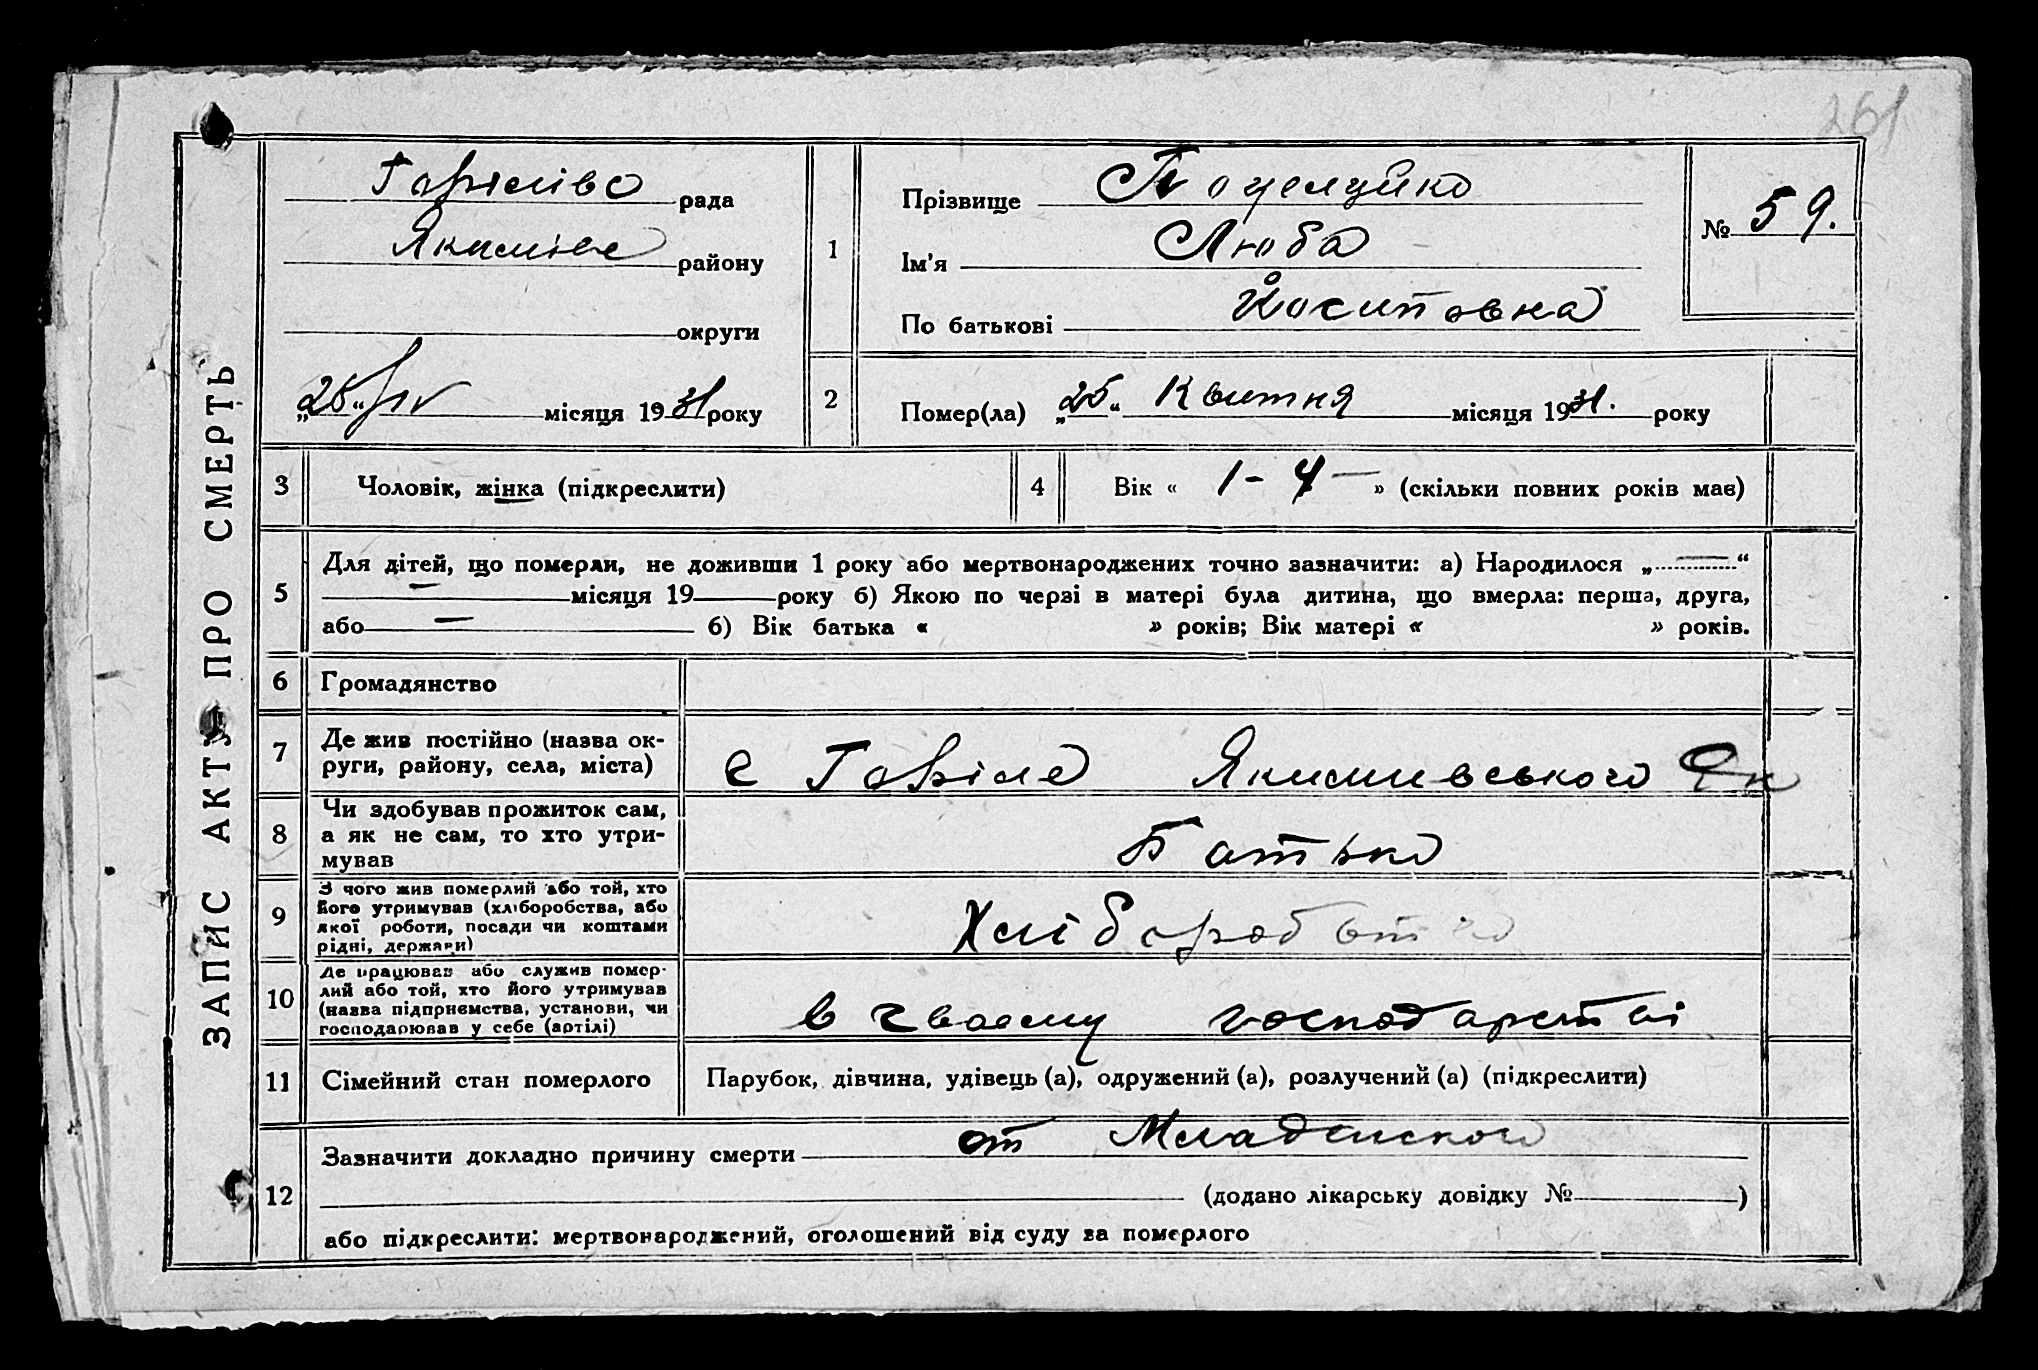 261
ЗАПИС АКТУ ПРО СМЕРТЬ
рада
району
округи
„25“ IV місяця 1931 року
1
Прізвище
Ім'я Люба
По батькові Йосиповна
№ 59.
2
Помер(ла) „25“ Квитня місяця 1931. року
3
Чоловік, жінка (підкреслити)
4
Вік « 1 - 4 — » (скільки повних років має)
5
Для дітей, що померли, не доживши 1 року або мертвонароджених точно зазначити: а) Народилося „—“
— місяця 19 року б) Якою по черзі в матері була дитина, що вмерла: перша, друга,
або — б) Вік батька « » років; Вік матері « » років.
6
Громадянство
7
Де жив постійно (назва ок-
руги, району, села, міста)
с Якимивського
8
Чи здобував прожиток сам,
а як не сам, то хто утри-
мував
Батько
9
З чого жив померлий або той, хто
його утримував (хліборобства, або
якої роботи, посади чи коштами
рідні, держави)
10
Де працював або служив помер-
лий або той, хто його утримував
(назва підприємства, установи, чи
господарював у себе (артілі)
в своему господарстві
11
Сімейний стан померлого
Парубок, дівчина, удівець (а), одружений (а), розлучений (а) (підкреслити)
12
Зазначити докладно причину смерти от Младенского
(додано лікарську довідку № )
або підкреслити: мертвонароджений, оголошений від суду за померлого